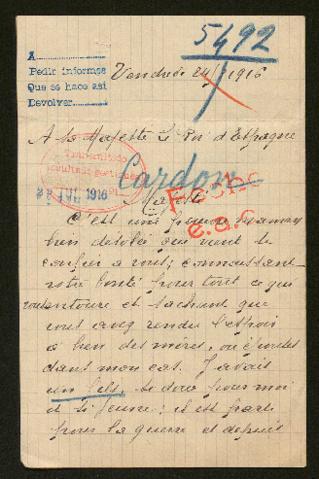 5492
A
Pedir informes
Que se hace así
Devolver
Vendredi 24/ 1916
A Sa Majesté Le Roi d'Espagne
Transmitido
22 JUL 1916
Cardon
Majesté
Fiche
e.a.c.
C'est une pauvre maman
bien désolée qui vient se
confier à vous; connaissant
votre bonté pour tout ce qui
entoure et sachant que
vous avez rendu l'espoir
à bien des mères, ou épouses
dans mon cas. J'avais
un fils, si doux pour moi
et si jeune: il est parti
pour la guerre et depuis